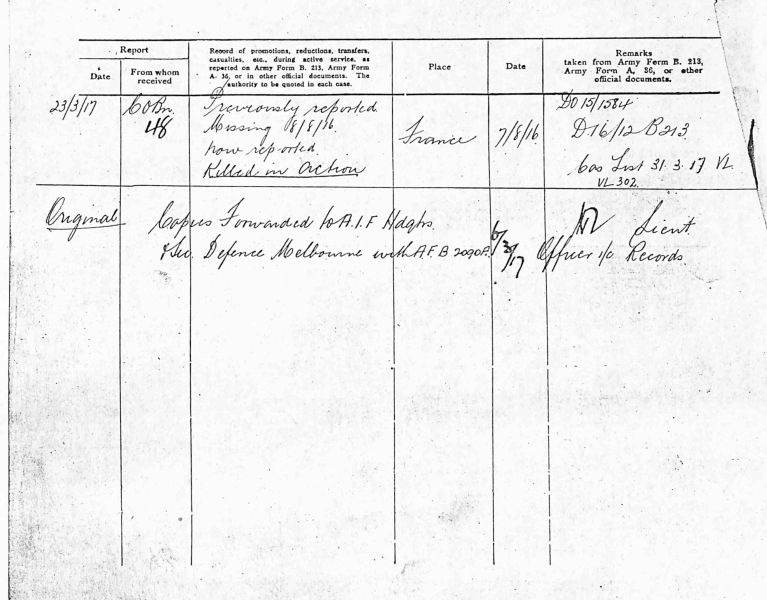 Report
Date
From whom received
Record of promotions, reductions, transfers,
casualties, etc., during active service, as
reported on Army Form B. 213, Army Form
A. 36, or in other official documents. The
authority to be quoted in each case.
Place
Date
Remarks
taken from Army Form B. 213,
Army Form A, 36, or other
official documents.
23/3/17
CO Bn.
48
Previously reported
Missing 8/8/16.
now reported
Killed in Action
France
7/8/16
DO 15/1584
D16/12 B213
Cas List 31.3.17 VL
VL 302.
Original
Copies Forwarded to A.I.F Hdqrs.
& Sec. Defence Melbourne with A.F.B 2090A.
Lieut
Officer i/c Records